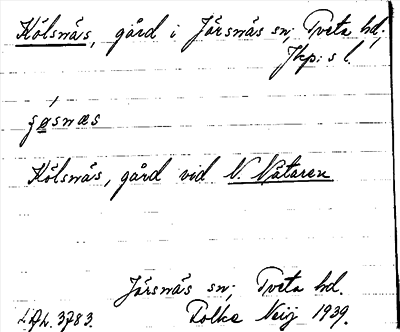 Kölsnäs, gård i Järsnäs sn, Tveta hd,
Jkp:s l.
Kölsnäs, gård vid N. Nätaren
Järsnäs sn, Tveta hd.
3783. Folke Neij 1939.